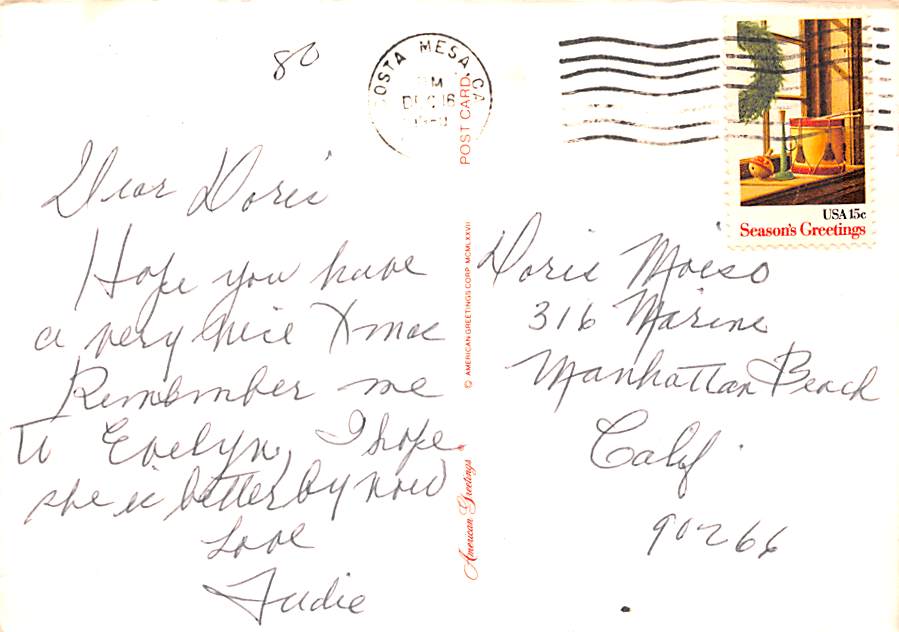 80
COSTA MESA, CA
DEC 16
USA 15c
Season's Greetings
Dear Doris
Hope you have
a very nice Xmas
Remember me
to Evelyn, I hope
she is better by now
Love
POST CARD
© AMERICAN GREETINGS CORP. MCMLXXVII
American Greetings
Doris Moiso
316 Marine
Manhattan Beach
Calif.
90266